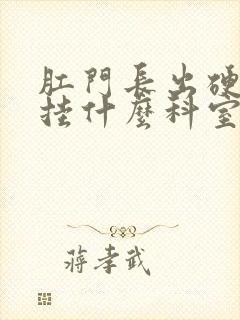 肛門長出硬
挂什麼科室
蔣孝武